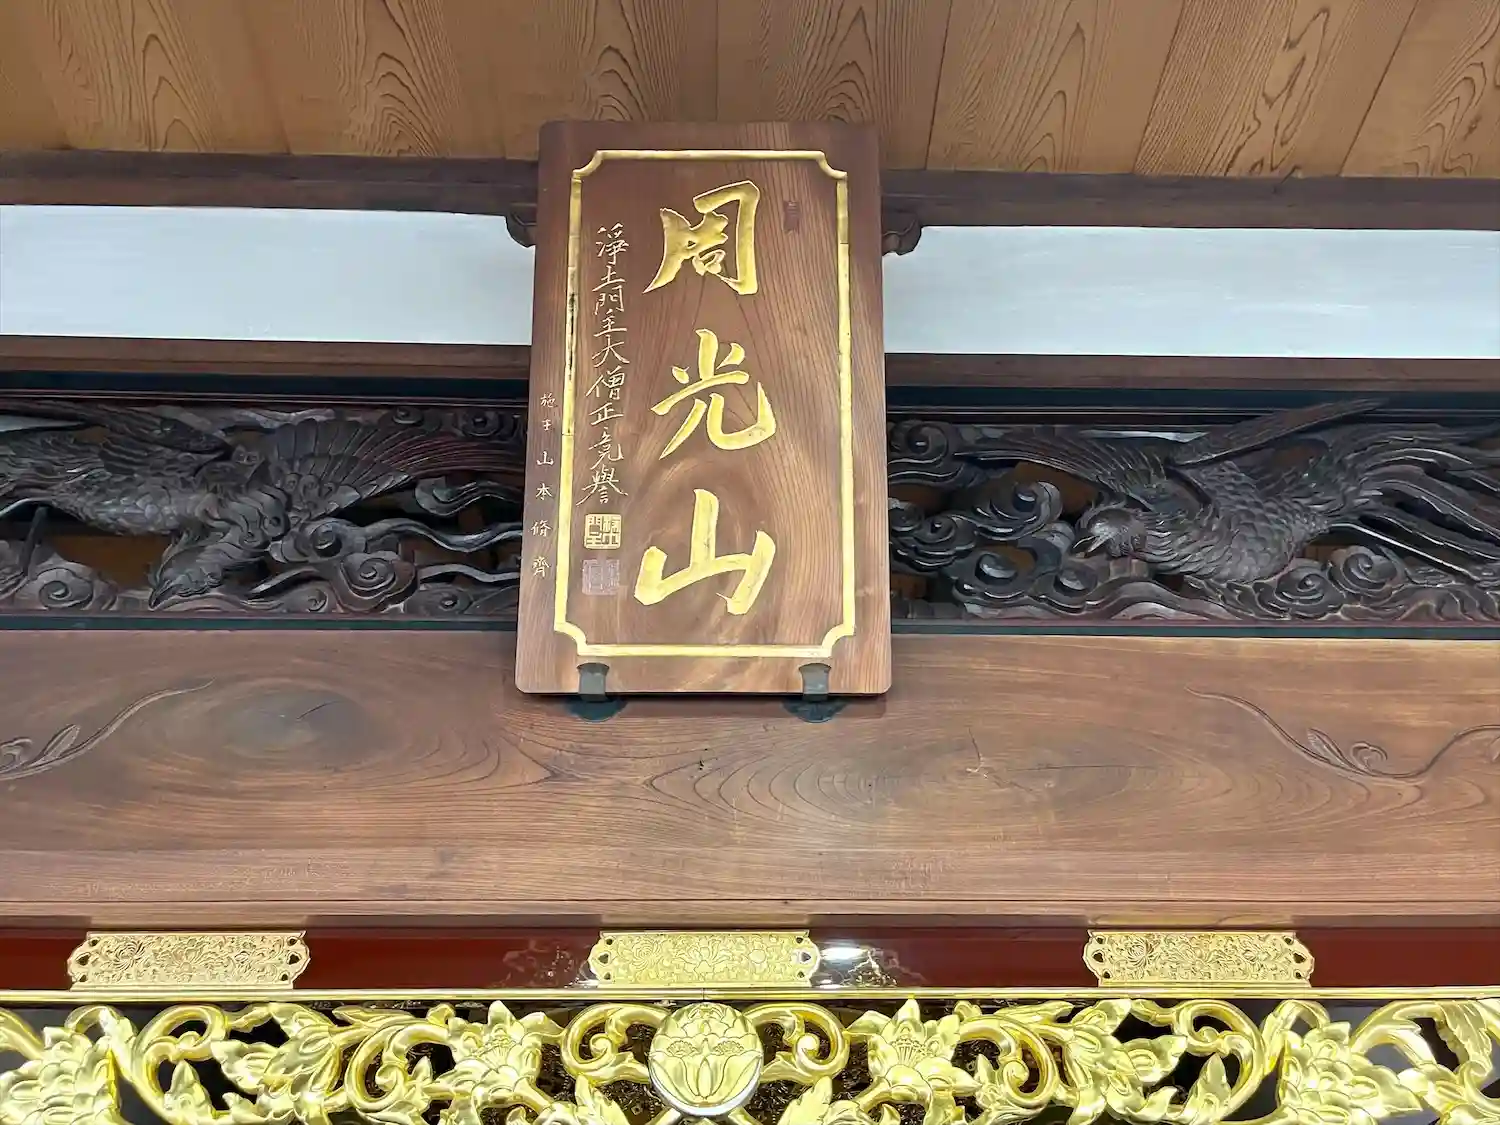 周光山
淨土門主大僧正亮譽
施主 山本脩齊